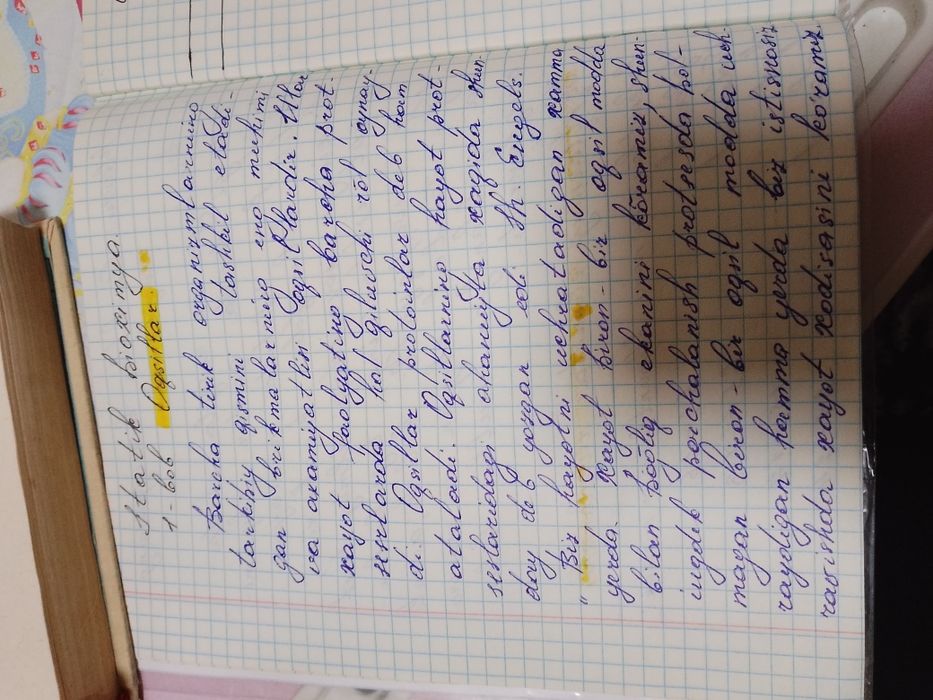 Statik bioximya.
1-bob Oqsillar.
Barcha tirik organizmlarning
tarkibiy qismini tashkil etadi-
gan birikmalarning eng muhimi
va axamiyatlisi oqsillardir. Ular
xayot faoliyating barcha prot-
sesslarda hal qiluvchi rol oynay-
di. Oqsillar proteinlar deb ham
ataladi. Oqsillarning hayot prot-
sesslaridagi ahamiyta xaqida shun-
day deb yozgan edi Fh. Engels.
"Biz hayotni uchratadigan xamma
yerda xayot biron-bir oqsil modda
bilan bog'liq ekanini ko'ramiz, shun-
ingdek parchalanish protsesda bol-
magan biron-bir oqsil modda uch-
raydigan hamma yerda biz istisnosiz
ravishda xayot xodisasini ko'ramiz